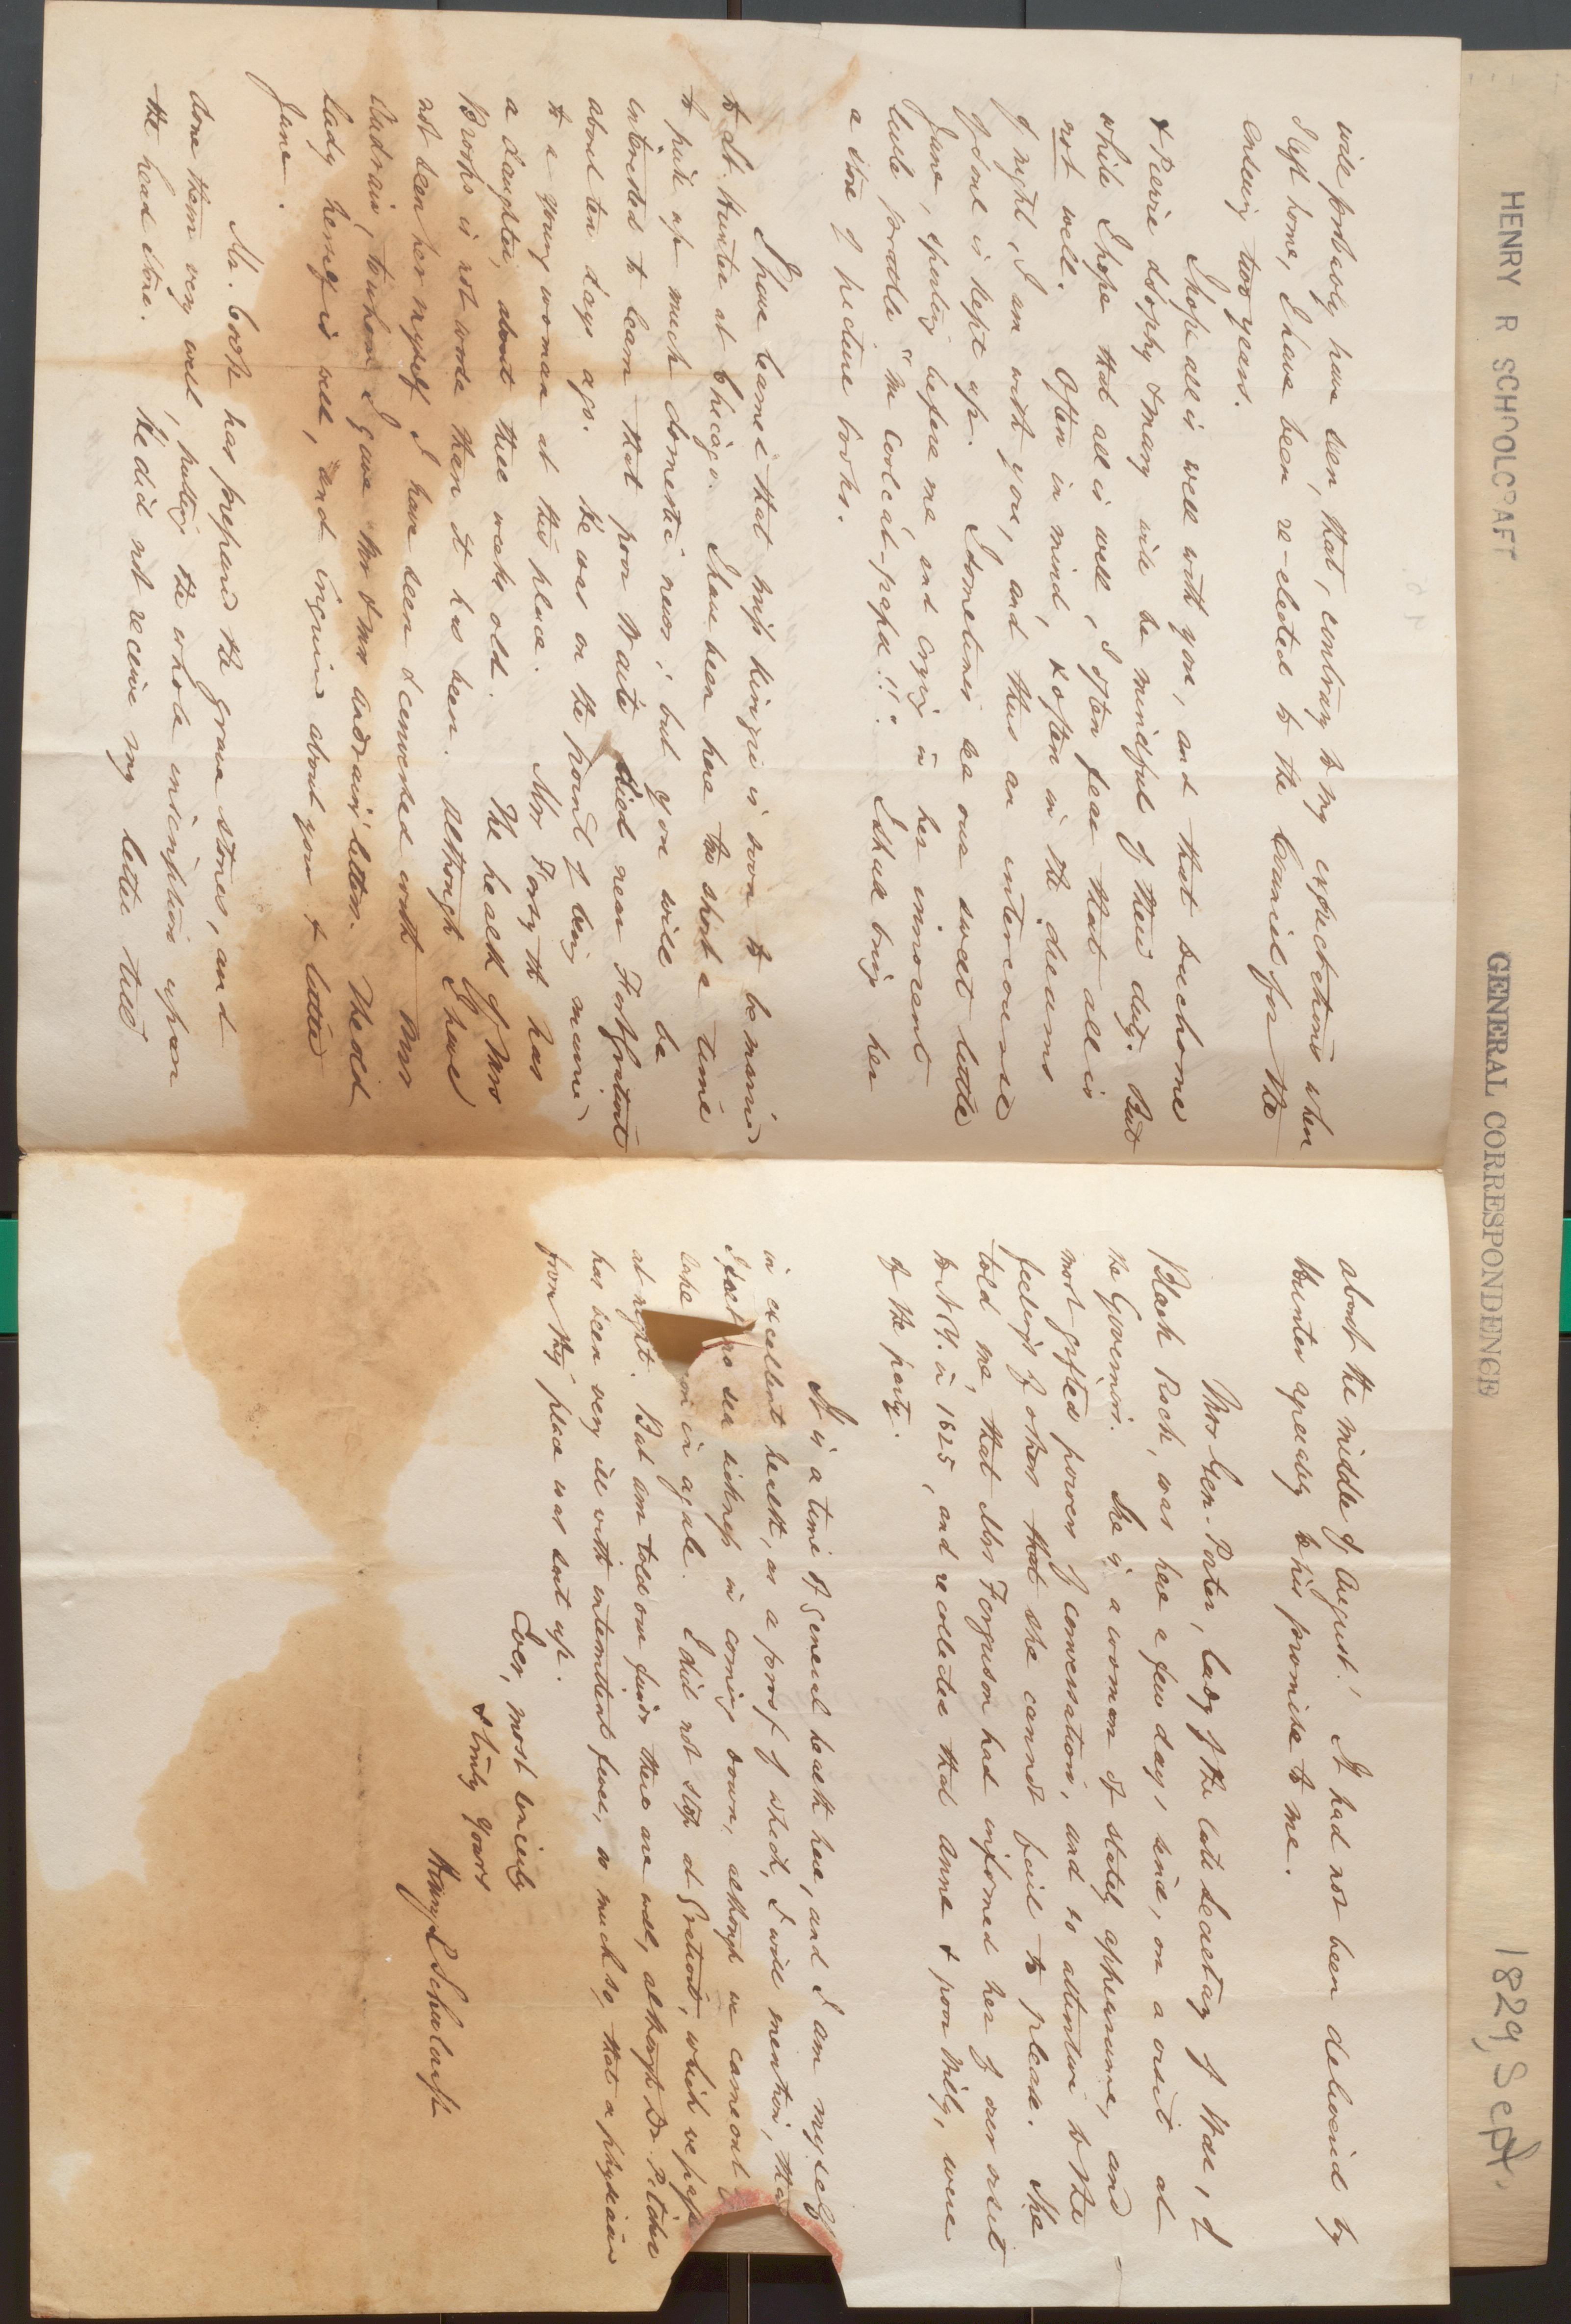 HENRY R SCHOOLCRAFT
GENERAL CORRESPONDENCE
1829, Sept.
will probably have seen, that, contrary to my expectations when
I left home, I have been re-elected to the Council for the
ensuing two years.
I hope all is well with you, and that Suchome
& Pierre dosophy & mary will be mindful of their duty. But
while I hope that all is well, I often fear that all is
not well. Often in mind, & often in the dreams
of night, I am with you, and thus an intercourse
of soul is kept up. I sometimes see our sweet little
Jane, sporting before me and crying in her innocent
little prattle "
a store of picture books. I shall bring her
I have learned that Miss Kinzie is soon to be married
to Lt. Hunter at Chicago. I have been here too short a time
to pick up much domestic news; but you will be
interested to learn that poor Waite died near Fort Gratiot
about ten days ago. He was on the point of being married
to a young woman at this place. Mrs Forsyth has
a daughter, about three weeks old. The health of Mrs
Brooks is not worse than it has been. Although I have
not seen her myself I have seen & conversed with Mrs
Andrain, to whom I gave Mr & Mrs Andrain's letters. The old
lady herself is well, and inquired about you & little
Jane.
Mr. Cook has prepared the grave stones, and
done them very well, putting the whole inscription upon
the head stone. He did not receive my letter till
about the middle of August! It had not been delivered by
Hunter agreeably to his promise to me.
Mrs Gen. Porter, lady of the late Secretary of War, of
Black Rock, was here a few days, since, on a visit at
the Governor's. She is a woman of stately appearance, and
most gifted powers of conversation, and so attentive to the
feelings of others that she cannot fail to please. She
told me, that Mrs Ferguson had informed her of our visit
to N.Y. in 1825, and recollected that Anne & poor Willy, were
of the party.
It is a time of general health here, and I am myself
in excellent health, as a proof of which, I will mention, tha
I felt no sea sickness in coming down, although we came out
lake in a gale. I did not stop at Gratiot, which we pass
at night. But am told our friends there are well, although Dr. Pitcher
has been very ill with intermittent fever, so much so, that a physician
from this place was sent up.
Ever, most sincerely
& truly yours
Henry R Schoolcraft